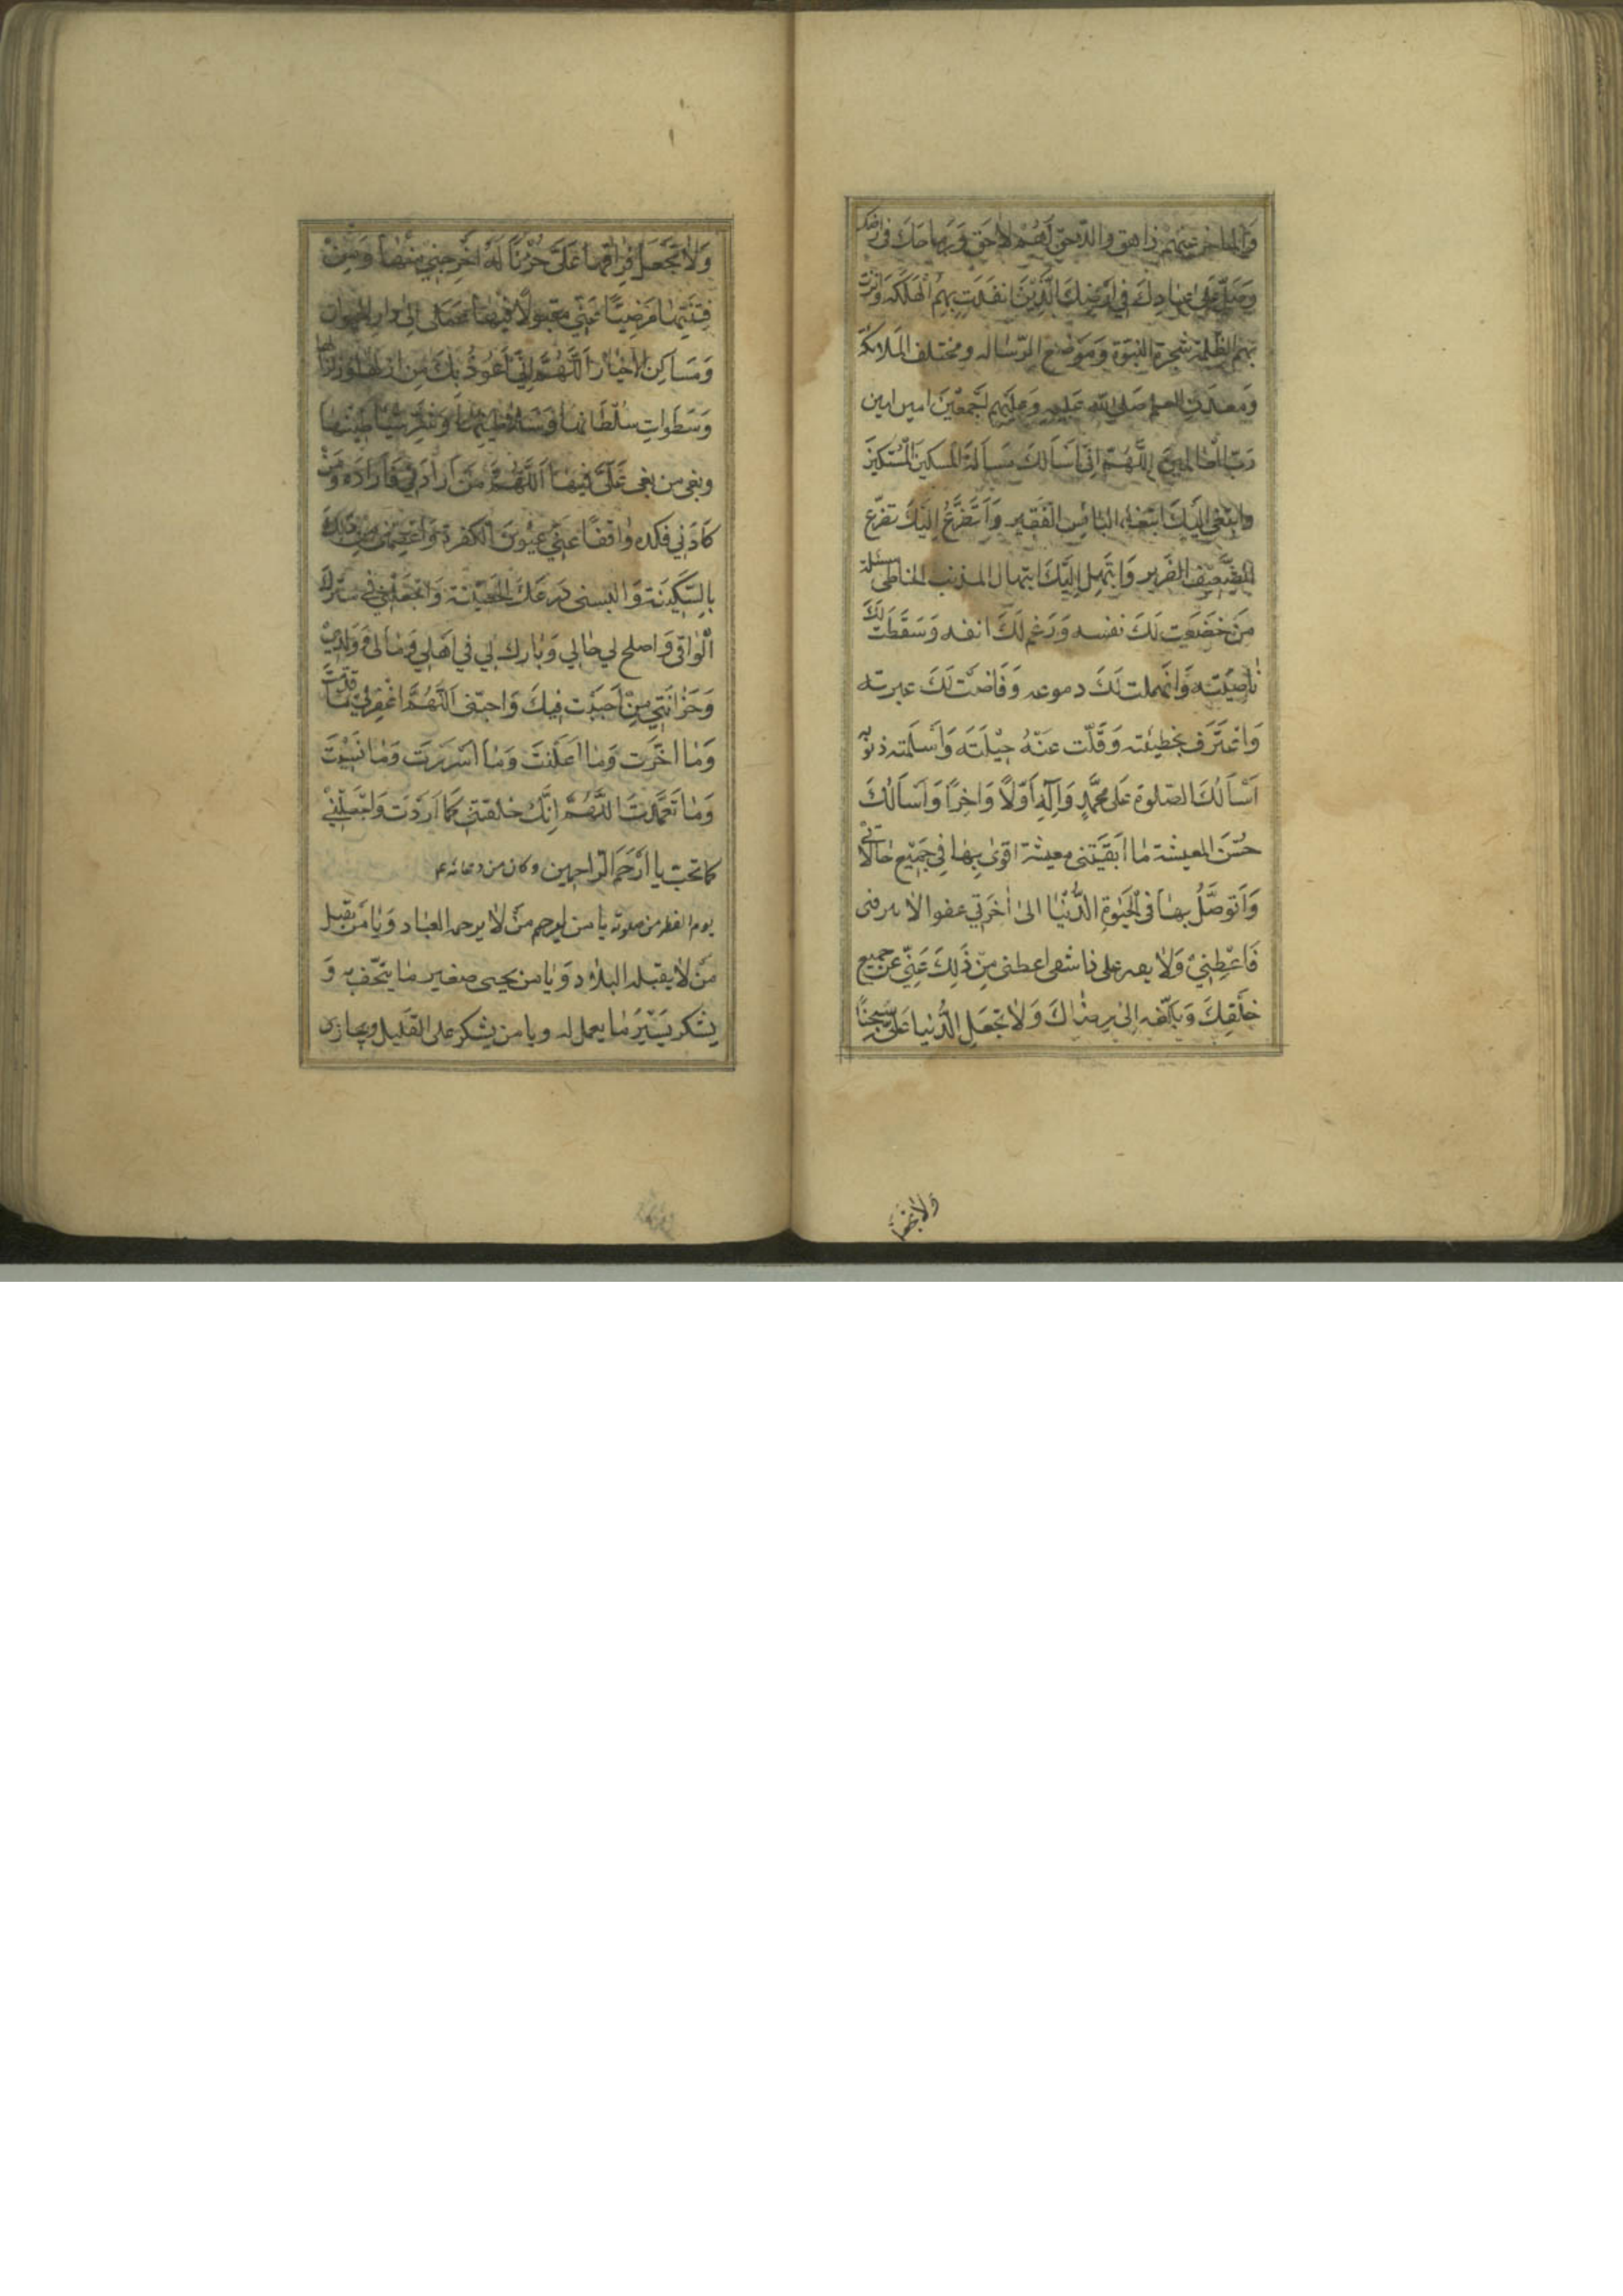 وَالمتاخر عنهم زاهق واللاحق لَهُمْ لاحق
وَصَلِّ عَلى عبادِكَ في اَرْضِكَ الَّذِيْنَ انقذت بهم الهلكة وانرت
بهم الظلمة شجرة النبوّة وَمَوضع الرّساله ومختلف الملائكة
وَمَعدن العلم صَلّى الله عَليه وَعليهم اَجمعْينَ امين امين
رَبّ العالمين اللَّهُمَّ اِنّي اَسَالكَ مَسألة المسكين المُستكين
وابتغى اليك ابتغاء البائس الفَقير وَاَتضَرَّع اِليْكَ تضرّع
الضَّعيف الضرير وَابتهل اليّكَ ابتهال المذنب الخاطى مسئلة
مَن خَضَعَت لَكَ نفسه وَرَغم لَكَ انفه وَسَقَطَت لَكَ
نَاصِيَته وَانهملت لَكَ دموعه وَفَاضَت لَكَ عبرته
وَاعْتَرَف بخطيئته وَقَلّت عَنْهُ حِيْلَتَه وَاَسلَمته ذنوبه
اَسْاَلُكَ الصّلوة عَلى مُحَمَّدٍ وَآلِهِ اَوّلاً وَاخِرًا وَاَسَالُكَ
حُسْنَ المعيشة مٰا اَبقَيْتنى معيشة اقوىٰ بِهٰا فِي جَمِيْع حالاتي
وَاَتوَصَّلُ بهٰا فى الْحَيٰوةِ الدُّنْيٰا الىٰ اٰخَرَتِي عفوا لا
فَاعْطِنِيْ وَلاٰ اعطنى مِنْ ذَلِكَ غنىً عن جميع
خَلْقِكَ وَ اِلىٰ رِضٰاكَ وَلاٰ تَجْعَلِ الدُّنيا عَليَّ سِجنًا
وَلاٰ تَجْعَل فراقها عَلَيَّ حُزنًا اَخْرِجني منها وَمِنْ
فِتنَتِهٰا مَرْضِيًّا عَنّي مقبولاً فيها عملى اِلىٰ دار الحيوان
وَمَسَاكِن الاخيار اَللّٰهُمَّ اِنّي اَعُوذُ بِكَ مِن ازلها وزلزالها
وَسَطَواتِ سُلطَانها وَسَلاطينها وَشَرّ شيَاطينهٰا
وبغى من بغى عَلَيَّ فيهٰا اَللّٰهُمَّ مَنْ اَرادَني فَاَرِدْهُ وَمَنْ
كَادَني فكده وَافْقأ عَنّي عيُونَ الكفرة وَاعْصِمْني مِن ذلك
بِالسَّكينَة وَالبسنى دِرعَكَ الحَصينة وَاجْعَلْني في سترك
الوٰاقى وَاصلح لي حٰالي وَبٰارك لي في اَهلي وَمٰالى وَوَلَدِيْ
وَحُزٰانَتي مَنْ اَحبَبْت فيكَ وَاحبّنى اَللّٰهُمَّ اغْفِرلي مٰا قَدَّمت
وَمٰا اخَّرْت وَمٰا اَعلَنتُ وَمٰا اَسْرَرت وَمٰا نَسِيْتُ
وَمٰا تَعَمَّدتُ اَللّٰهُمَّ اِنّكَ خلقتنى كَمٰا اَرَدْتَ وَاجْعَلْنِيْ
كما تحب يا اَرْحَمَ الرّاحمين وكان من دعائه ع
يوم الفطر من صلوته يا من يرحم مَنْ لاٰ يرحمه العبٰاد وَيٰا مَن يقبل
مَنْ لاٰ يقبله البلاٰد وَيٰا من صغير مٰا يتحّف به وَ
يشكر يَسْيَر مٰا يعمل له ويا من يشكر على القليل ويجازى
ولا تجعل